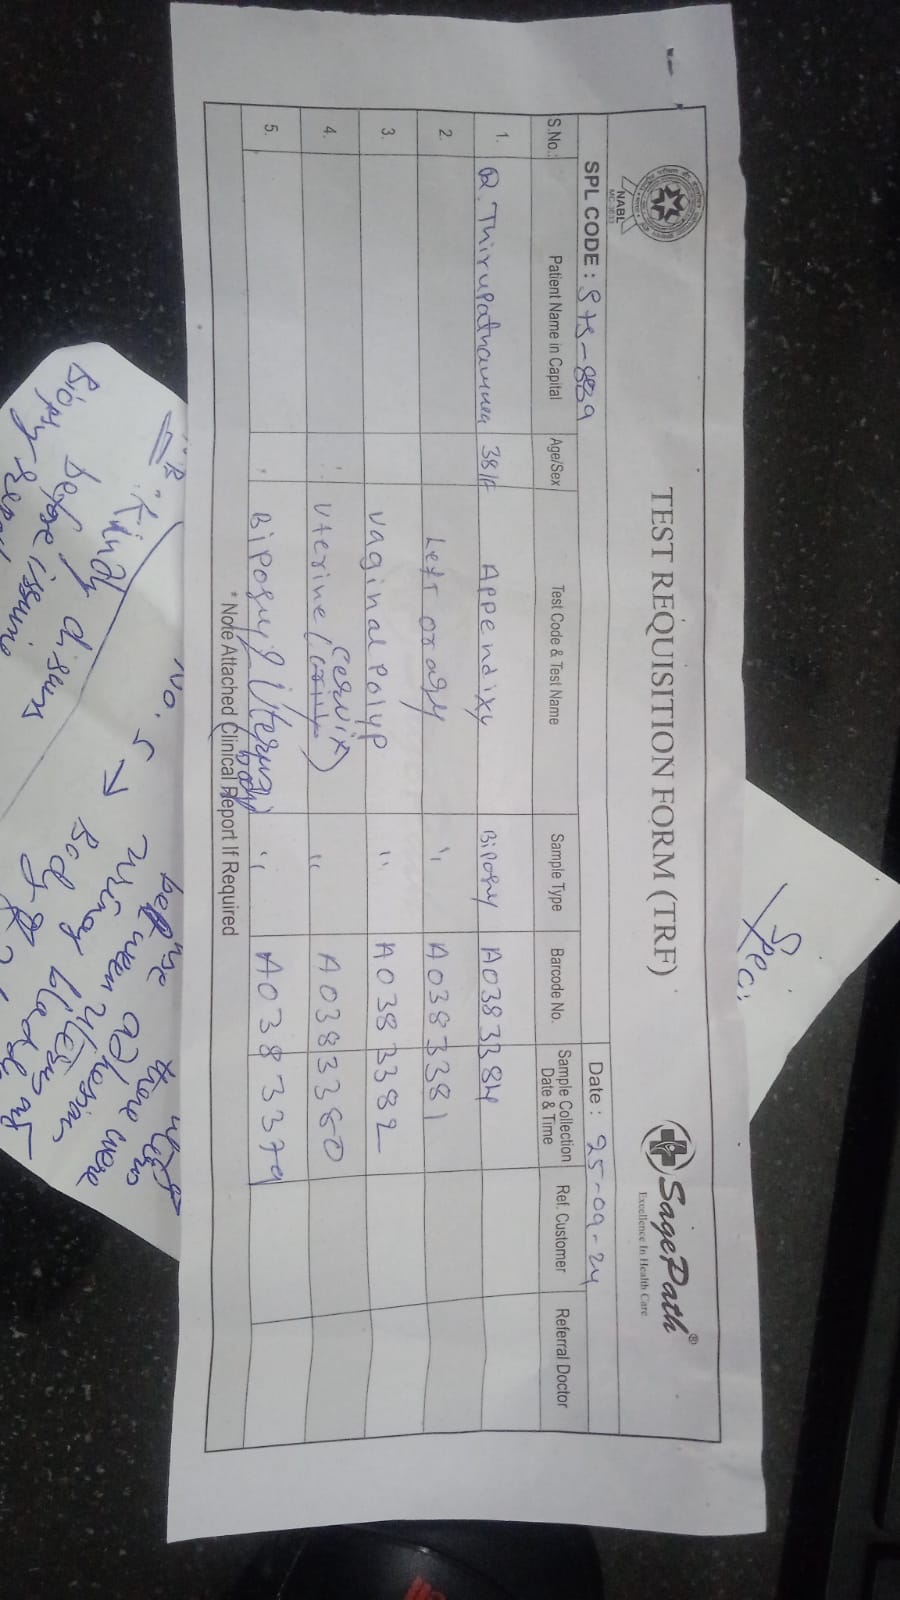 NABL
MC-3633
TEST REQUISITION FORM (TRF)
SagePath®
Excellence In Health Care
SPL CODE : STS-889
Date : 25-09-24
S.No.: Patient Name in Capital Age/Sex Test Code & Test Name Sample Type Barcode No. Sample Collection Date & Time Ref. Customer Referral Doctor
1. R.Thirupathamma 38/F Appendixy Biposy A0383384
2. Left ovary " A0383381
3. vaginal polyp " A0383382
4. uterine (cervix) " A0383380
5. Biposuy / Uterus body " A0383379
* Note Attached Clinical Report If Required
Speci
Kindly discuss
before issuing
Biopsy
No. 5 →
there were
adhesions
between
using blade
Body